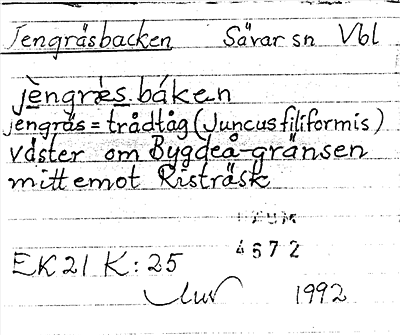 Jengräsbacken Sävar sn Vbl
jèngrès báken
jengräs = trådtåg (Juncus filiformis)
väster om Bygdeå-gränsen
mitt emot Risträsk
4572
EK21 K:25
1992